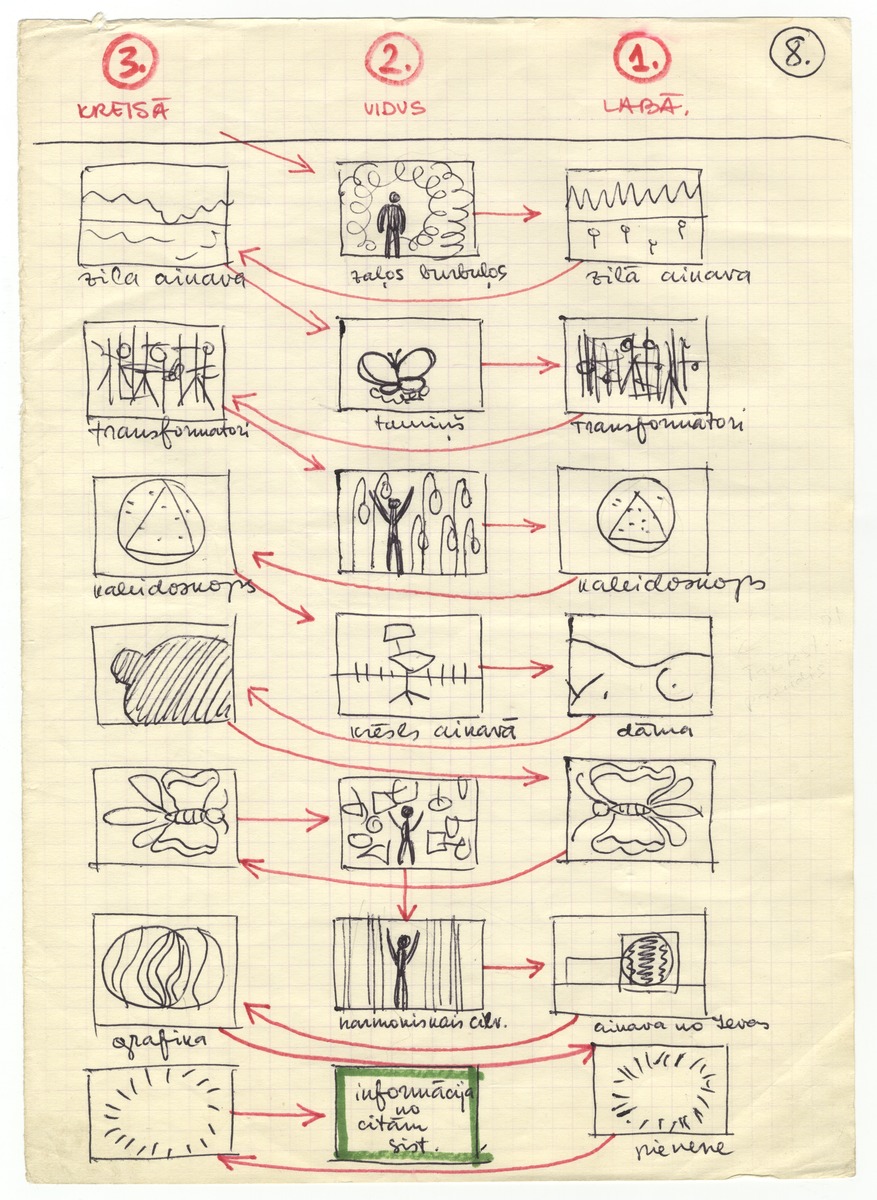 3. 2. 1. 8.
KREISĀ VIDUS LABĀ.
zila ainava zaļos burbuļos zilā ainava
transformatori tauriņš transformatori
kaleidoskops kaleidoskops
krēsls ainavā dāma
grafika harmoniskais cilv. ainava no Ievas
informācija
no
citām
sist.
pienene